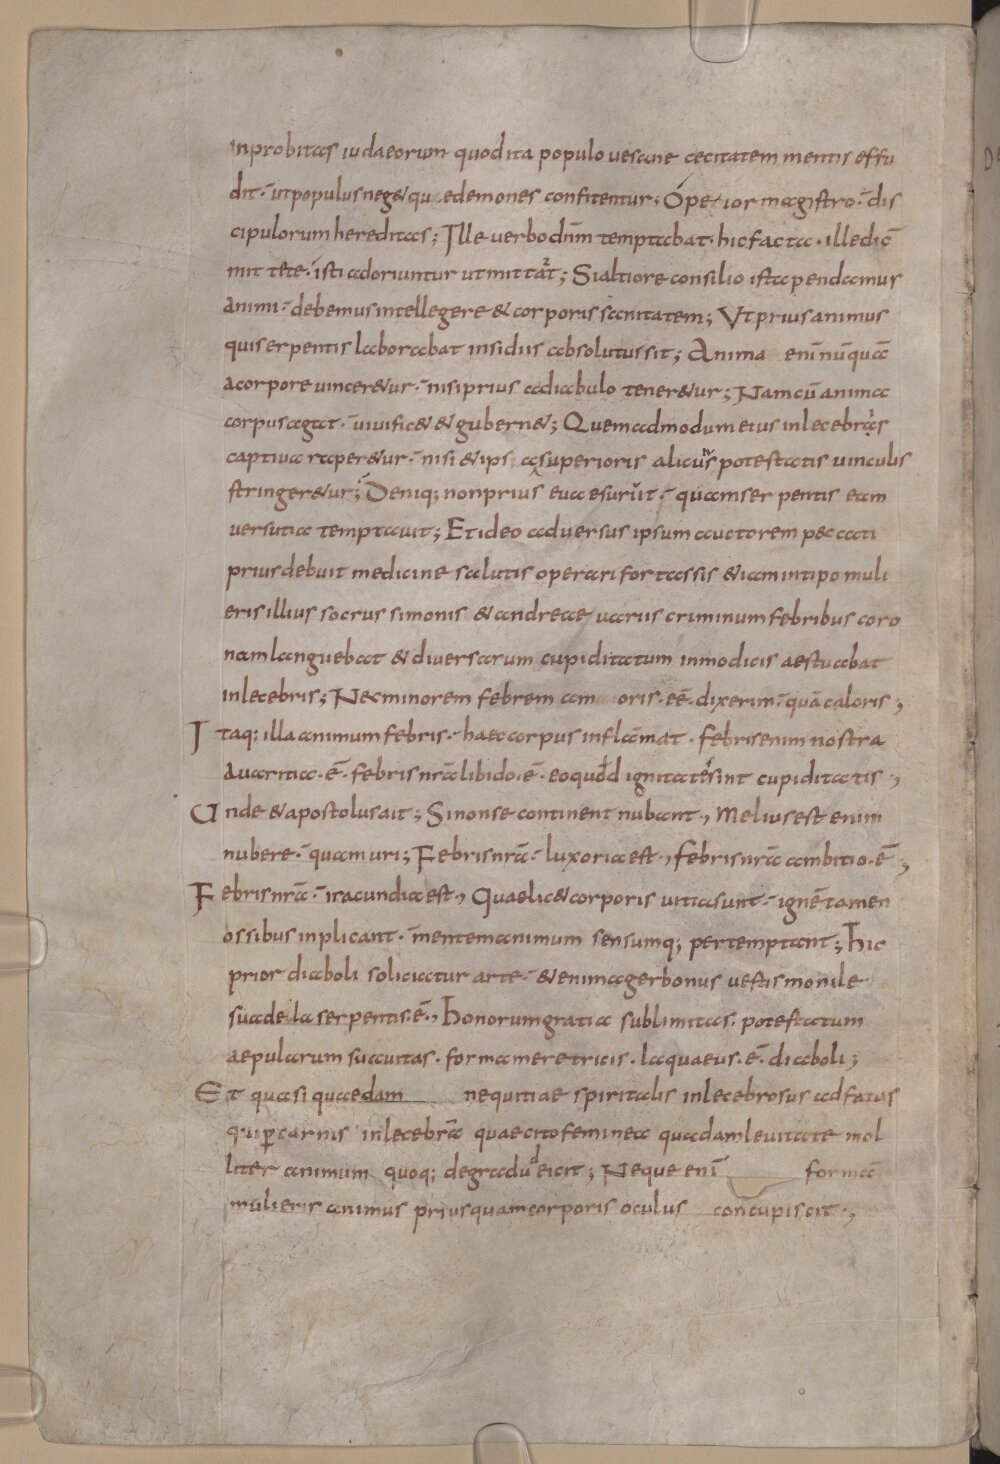 inprobitas iudaeorum quodita populo uesane cecitatem mentis effu
dit · utpopulus neg& qu edemones confitentur; Ope ior magistro · dis
cipulorum hereditas; Ille uerbo dnm̄ temptabat · hic facta · ille dic̄
mit tete · isti adoriuntur utmittat; Si altiore consilio ista pendamus
animi · debemus intellegere & corporis sanitatem; Ut prius animus
qui serpentis laborabat insidiis absolutus sit; Anima enī nūquā
acorpore uincer&ur · nisi prius a diabulo tener&ur; Nam cū anima
corpus agat · uiuific& & gubern&; Quemadmodum eius inlecebris
captiua raper&ur · nisi & ips a superioris alicuˢ potestatis uinculis
stringer&ur; Deniq; non prius eua esuriit · quam serpentis eam
uersutia temptauit; Et ideo aduersus ipsum auctorem peccati
prius debuit medicine salutis operari fortassis & iam in tipo muli
eris illius socrus simonis & andreae uariis criminum febribus coro
nam languebat & diuersarum cupiditatum inmodicis aestuabat
inlecebris; Nec minorem febrem am oris · eē · dixerim · quā caloris ;
Itaq; illa animum febris · haec corpus inflāmat · febris enim nostra
auaritia · ē · febris nrā libido · ē · eo quod ignitates sint cupiditatis ;
Unde & apostolus ait; Si non se continent nubant, Melius est enim
nubere · quam uri; Febris nrā · luxoria est, febris nrā ambitio · ē ;
Febris nrā · iracundia est, Quae lic& corporis uitia sunt · ignē tamen
ossibus inplicant · mentem animum sensumq; pertemptant; hic
prior diaboli soliciatur arte · & enim ager bonus uestis monile
suadela serpentis · ē, honorum gratia sublimitas · potestatum
aepularum suauitas · forma meretricis · laquaeus · ē · diaboli;
Et quasi quaedam nequitiae spiritalis inlecebrosus adfatus
qui p carnis inlecebrā quae cito feminea quadam leuitate mol
liter animum quoq; degradu deicit; Neque enī formā
mulieris animus prius quam corporis oculus concupiscit ;